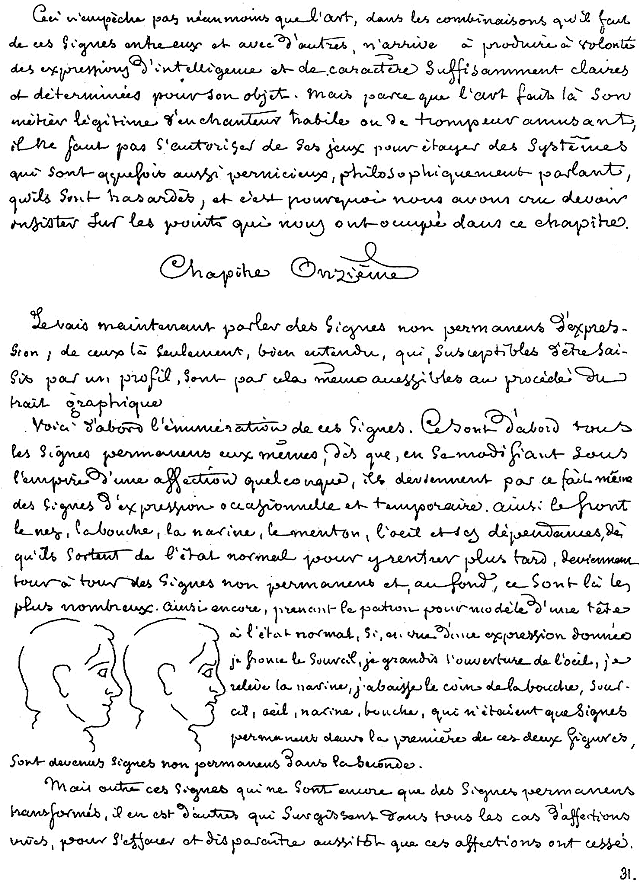 Ceci n'empêche pas néanmoins que l'art, dans les combinaisons qu'il fait
de ces signes entre eux et avec d'autres, n'arrive à produire à volonté
des expressions d'intelligence et de caractère suffisamment claires
et déterminées pour son objet. Mais parce que l'art fait là son
métier légitime d'enchanteur habile ou de trompeur amusant,
il ne faut pas s'autoriser de ses jeux pour étayer des systèmes
qui sont qqfois aussi pernicieux, philosophiquement parlant,
qu'ils sont hasardés, et c'est pourquoi nous avons cru devoir
insister sur les points qui nous ont occupé dans ce chapitre.
Chapitre Onzième
Je vais maintenant parler des signes non permanens d'expres-
sion, de ceux là seulement, bien entendu, qui, susceptibles d'être sai-
sis par un profil, sont par cela même accessibles au procédé du
trait graphique
Voici d'abord l'énumération de ces signes. Ce sont d'abord tous
les signes permanens eux mêmes, dès que, en se modifiant sous
l'empire d'une affection quelconque, ils deviennent par ce fait même
des signes d'expression occasionnelle et temporaire. Ainsi le front
le nez, la bouche, la narine, le menton, l'oeil et ses dépendances, dès
qu'ils sortent de l'état normal pour y rentrer plus tard, deviennent
tour à tour des signes non permanens et, au fond, ce sont là les
plus nombreux. Ainsi encore, prenant le patron pour modèle d'une tête
à l'état normal, si, en vue d'une expression donnée
je fronce le sourcil, je grandis l'ouverture de l'oeil, je
relève la narine, j'abaisse le coin de la bouche, sour-
cil, oeil, narine, bouche, qui n'étaient que signes
permanens dans la première de ces deux figures,
sont devenus signes non permanens dans la seconde.
Mais outre ces signes qui ne sont encore que des signes permanens
transformés, il en est d'autres qui surgissent dans tous les cas d'affections
vives, pour s'effacer et disparaître aussitôt que ces affections ont cessé.
31.